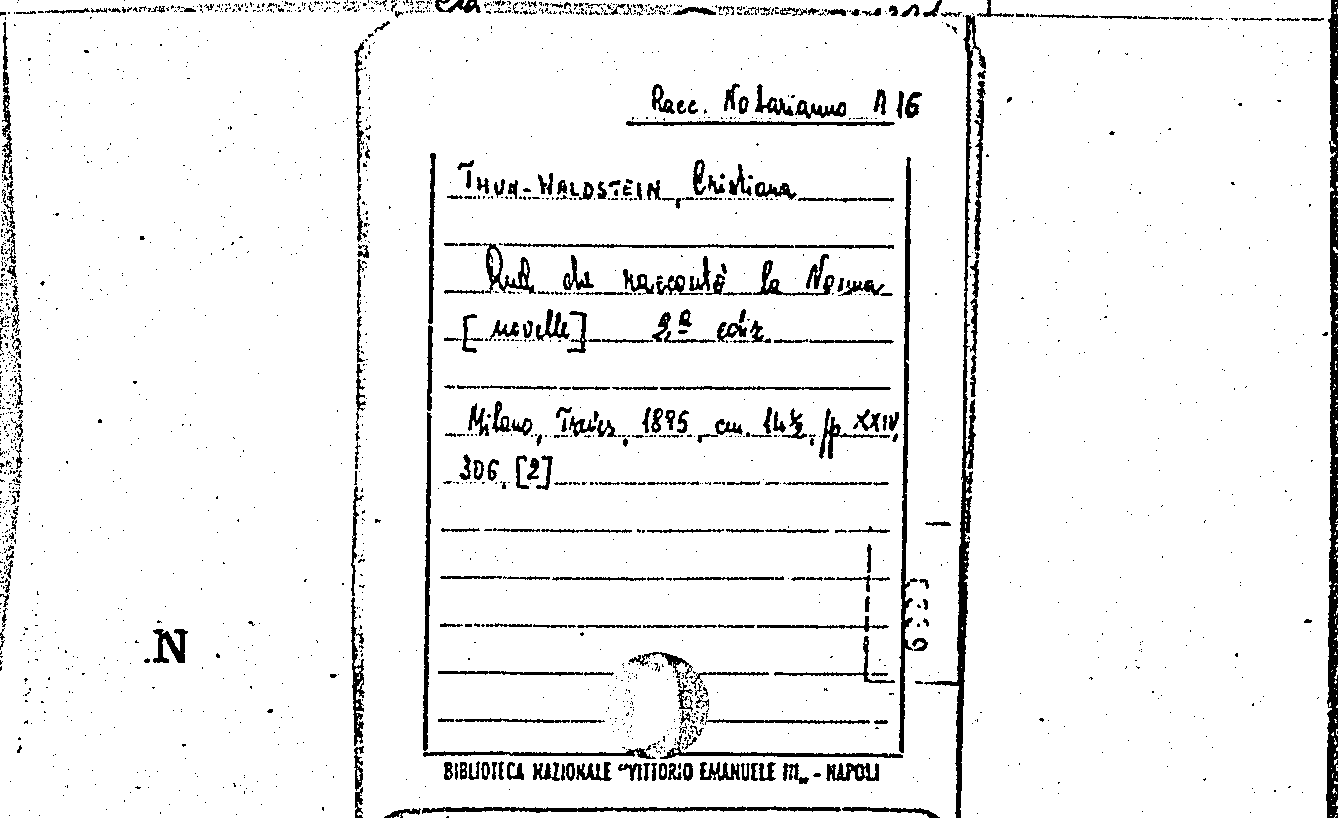 Racc. Notarianno A 16
THUN-WALDSTEIN, Cristiana
Quel che raccontò la Nonna
[novelle] 2.ª ediz.
Milano, Treves, 1895, cm. 14½, pp. XXIV,
306, [2]
N
BIBLIOTECA NAZIONALE "VITTORIO EMANUELE III„ - NAPOLI